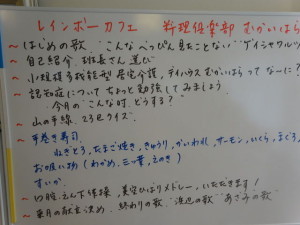 レインボーカフェ 料理倶楽部 むかいはら
~ はじめの歌 "こんなべっぴん見たことない" "ゲイシャワルツ
~ 自己紹介 班長さん選び
~ 小規模多機能型居宅介護、デイハウスむかいはらって なーに?
~ 認知症についてちょっと勉強してみましょう
今月の"こんな時、どうする?"
~ 山の手線、23区クイズ
~ 手巻き寿司
ねぎとろ、たまご焼き、きゅうり、かいわれ、サーモン、いくら、まぐろ
お吸い物(わかめ、三つ葉、えのき)
すいか
~ 口腔、えん下体操、美空ひばりメドレー、いただきます!
~ 来月の献立決め、終わりの歌 "浜辺の歌" "あざみの歌"